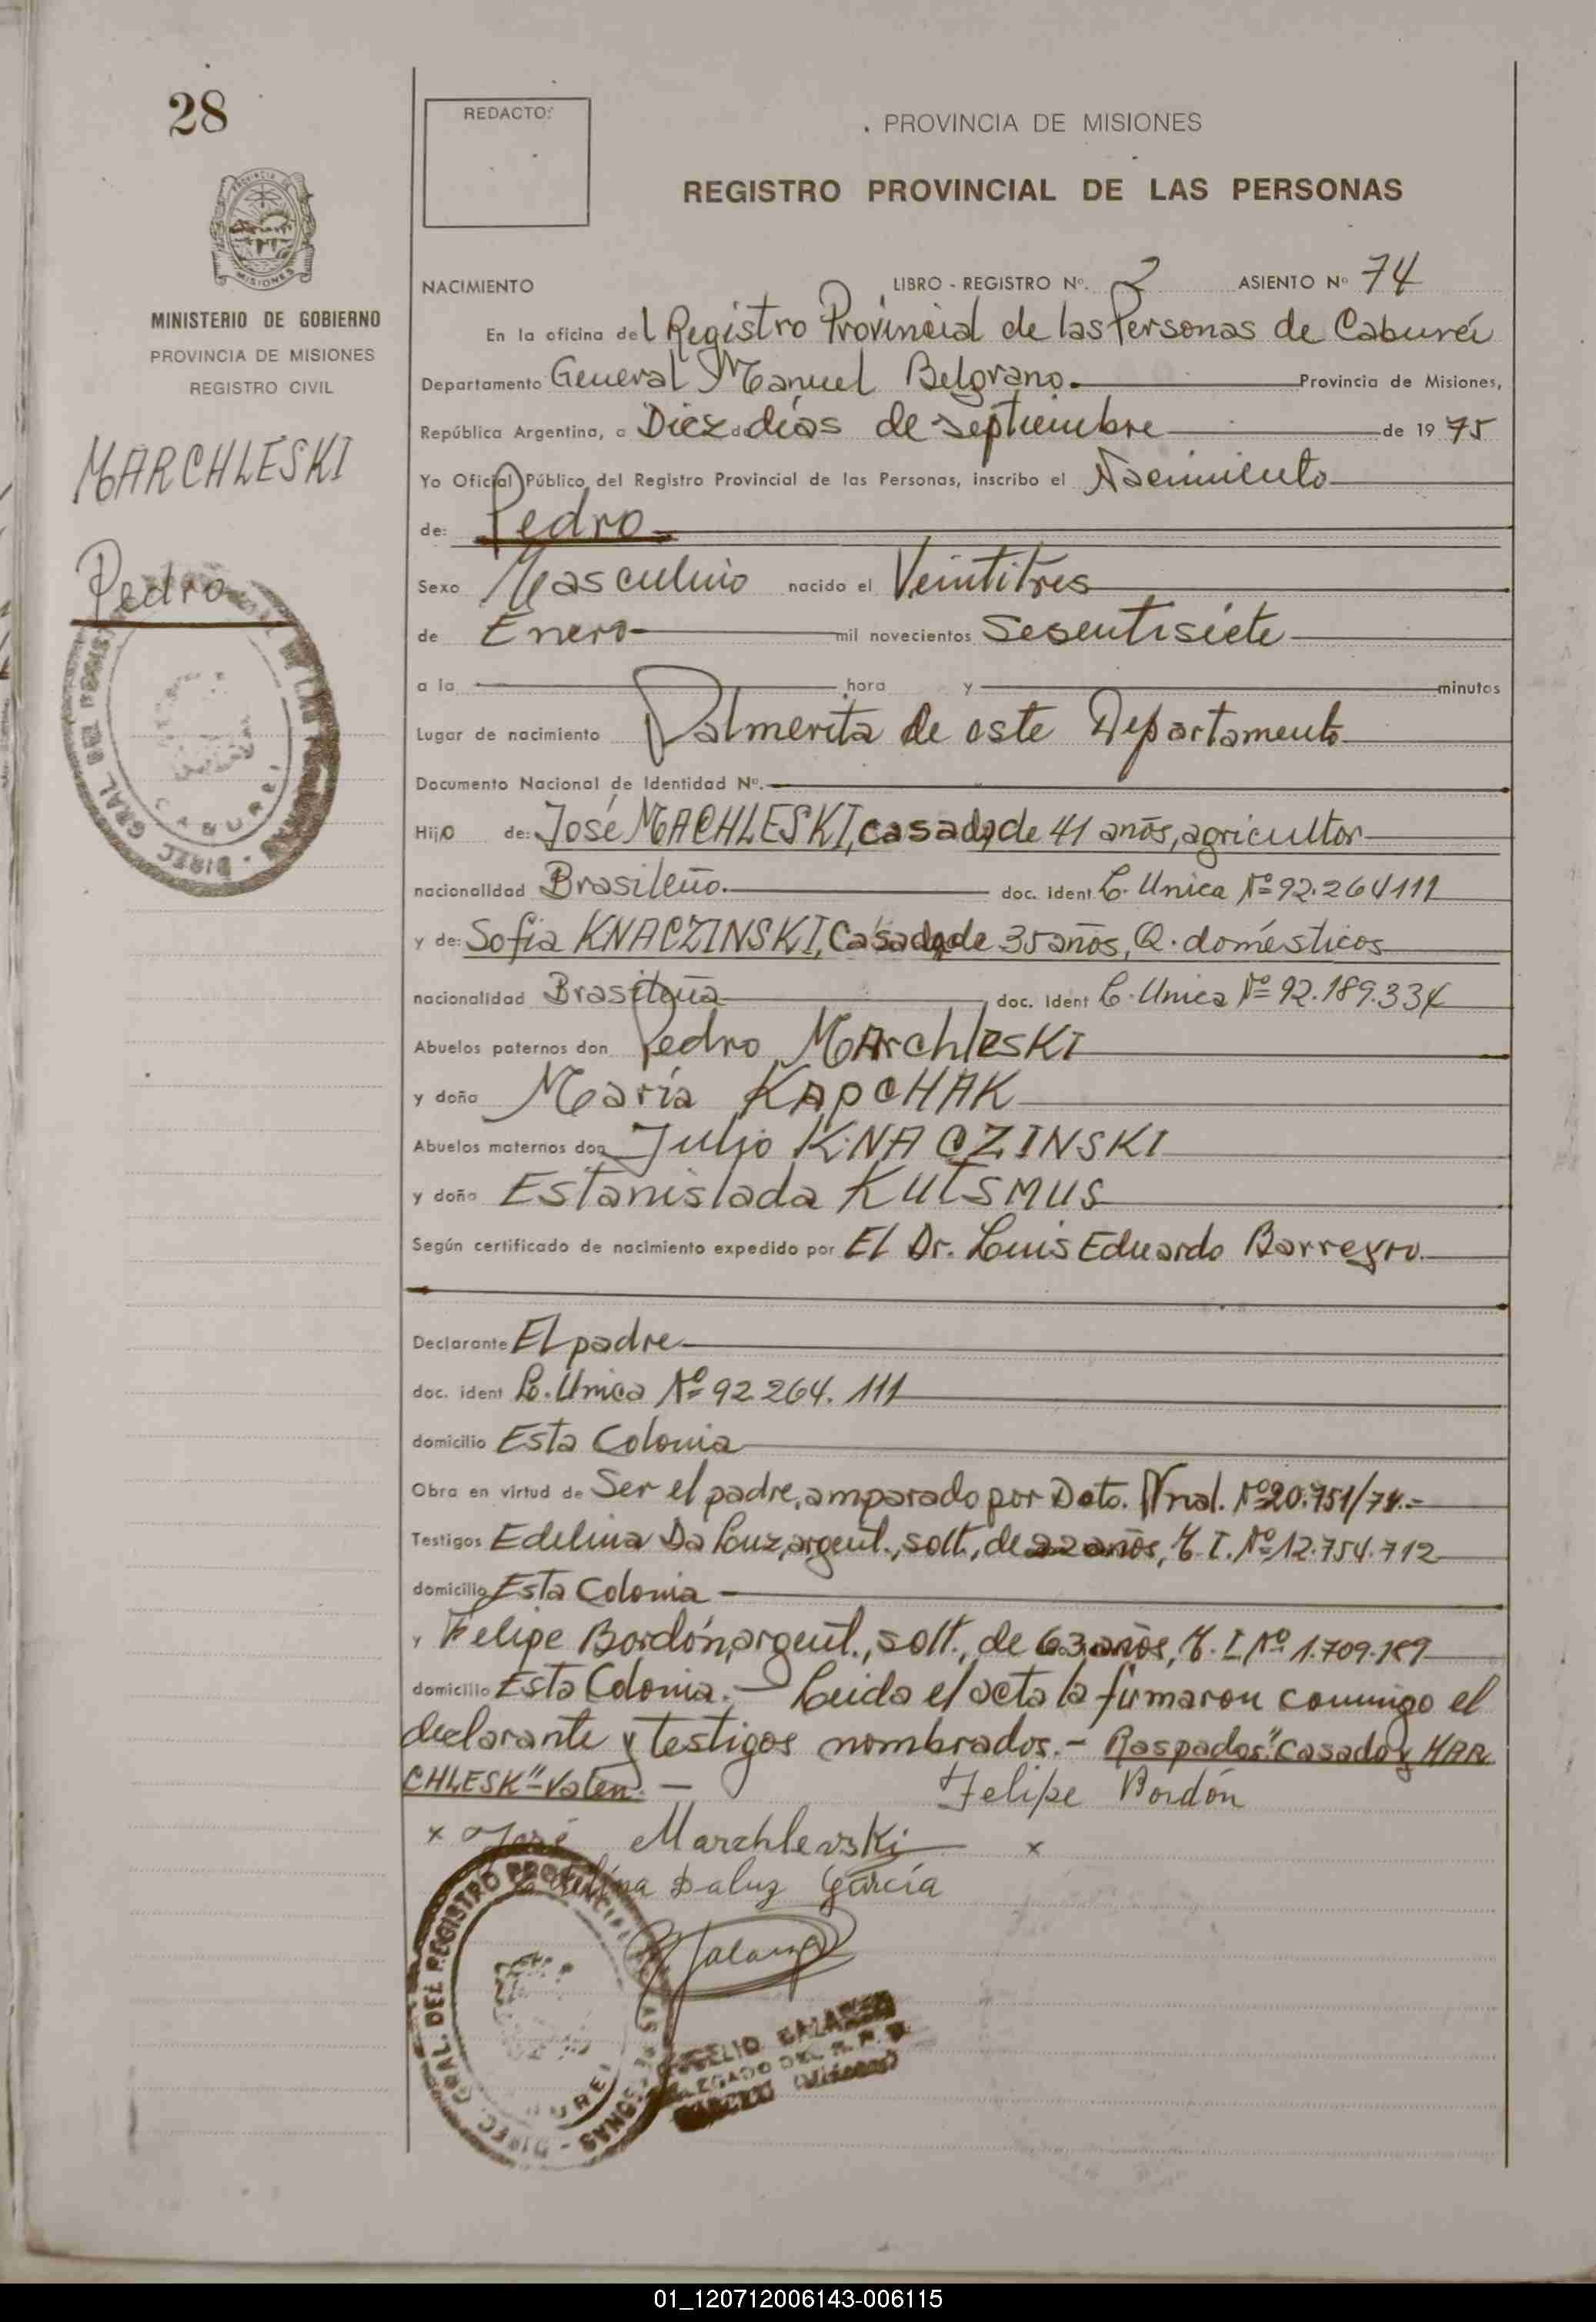 28
REDACTO:
PROVINCIA DE MISIONES
REGISTRO PROVINCIAL DE LAS PERSONAS
PROVINCIA DE
MISIONES
MINISTERIO DE GOBIERNO
PROVINCIA DE MISIONES
REGISTRO CIVIL
MARCHLESKI
Pedro
DIREC. GRAL DEL
CABUREI
NACIMIENTO LIBRO - REGISTRO Nº. 2 ASIENTO Nº 74
En la oficina del Registro Provincial de las Personas de Caburei
Departamento General Manuel Belgrano. Provincia de Misiones,
República Argentina, a Diez de días de septiembre de 1975
Yo Oficial Público del Registro Provincial de las Personas, inscribo el Nacimiento
de: Pedro
Sexo Masculino nacido el Veintitres
de Enero mil novecientos Sesentisiete
a la hora y minutos
Lugar de nacimiento Palmerita de este Departamento
Documento Nacional de Identidad Nº.
Hijo de: José MACHLESKI, casado, de 41 años, agricultor
nacionalidad Brasileño. doc. ident C. Unica Nº 92.264111
y de: Sofia KNACZINSKI, Casada de 35 años, Q. domésticos
nacionalidad Brasileña doc. ident C. Unica Nº 92.189.334
Abuelos paternos don Pedro MArchlesKI
y doña María KAPCHAK
Abuelos maternos don Julio KNACZINSKI
y doña Estanislada KUTSMUS
Según certificado de nacimiento expedido por El Dr. Luis Eduardo Barreyro.
Declarante El padre
doc. ident C. Unica Nº 92.264.111
domicilio Esta Colonia
Obra en virtud de Ser el padre, amparado por Dcto. Nnal. Nº 20.751/74.-
Testigos Edelina Da Luz, argent., solt., de 22 años, M. I. Nº 12.754.712
domicilio Esta Colonia
y Felipe Bordón, argent., solt., de 63 años, M. I. Nº 1.709.189
domicilio Esta Colonia.- Leida el acta la firmaron conmigo el
declarante y testigos nombrados.- Raspados: "Casado y MAR
CHLESK" Valen.-
Felipe Bordón
x José Marchlevski x
Edelina Daluz García
Galarza
DIREC. GRAL. DEL REGISTRO PROVINCIAL DE LAS PERSONAS
GALARZA
DELEGADO DEL R. P. P.
(Misiones)
01_120712006143-006115